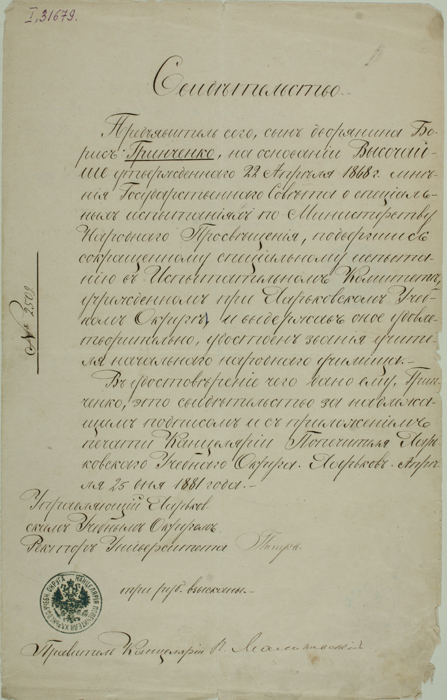 I, 31679.
Свидѣтельство.
Предъявитель сего, сынъ дворянина Бо-
рисъ Гринченко, на основаніи Высочай-
ше утвержденнаго 22 Апрѣля 1868 г. мнѣ-
нія Государственнаго Совѣта о спеціаль-
ныхъ испытаніяхъ по Министерству
Народнаго Просвѣщенія, подвергшись
сокращенному спеціальному испыта-
нію въ Испытательномъ Комитетѣ,
учрежденномъ при Харьковскомъ Учеб-
номъ Округѣ, и выдержавъ оное удовле-
творительно, удостоенъ званія учите-
ля начальнаго народнаго училища.
Въ удостовѣреніе чего дано ему, Грин-
ченко, это свидѣтельство за надлежа-
щимъ подписомъ и съ приложеніемъ
печати Канцеляріи Попечителя Харь-
ковскаго Учебнаго Округа. Харьковъ. Апрѣ-
ля 25 дня 1881 года.
№ 2509
Управляющій Харьков-
скимъ Учебнымъ Округомъ
Ректоръ Университета
три руб. взысканы.
Правитель Канцеляріи